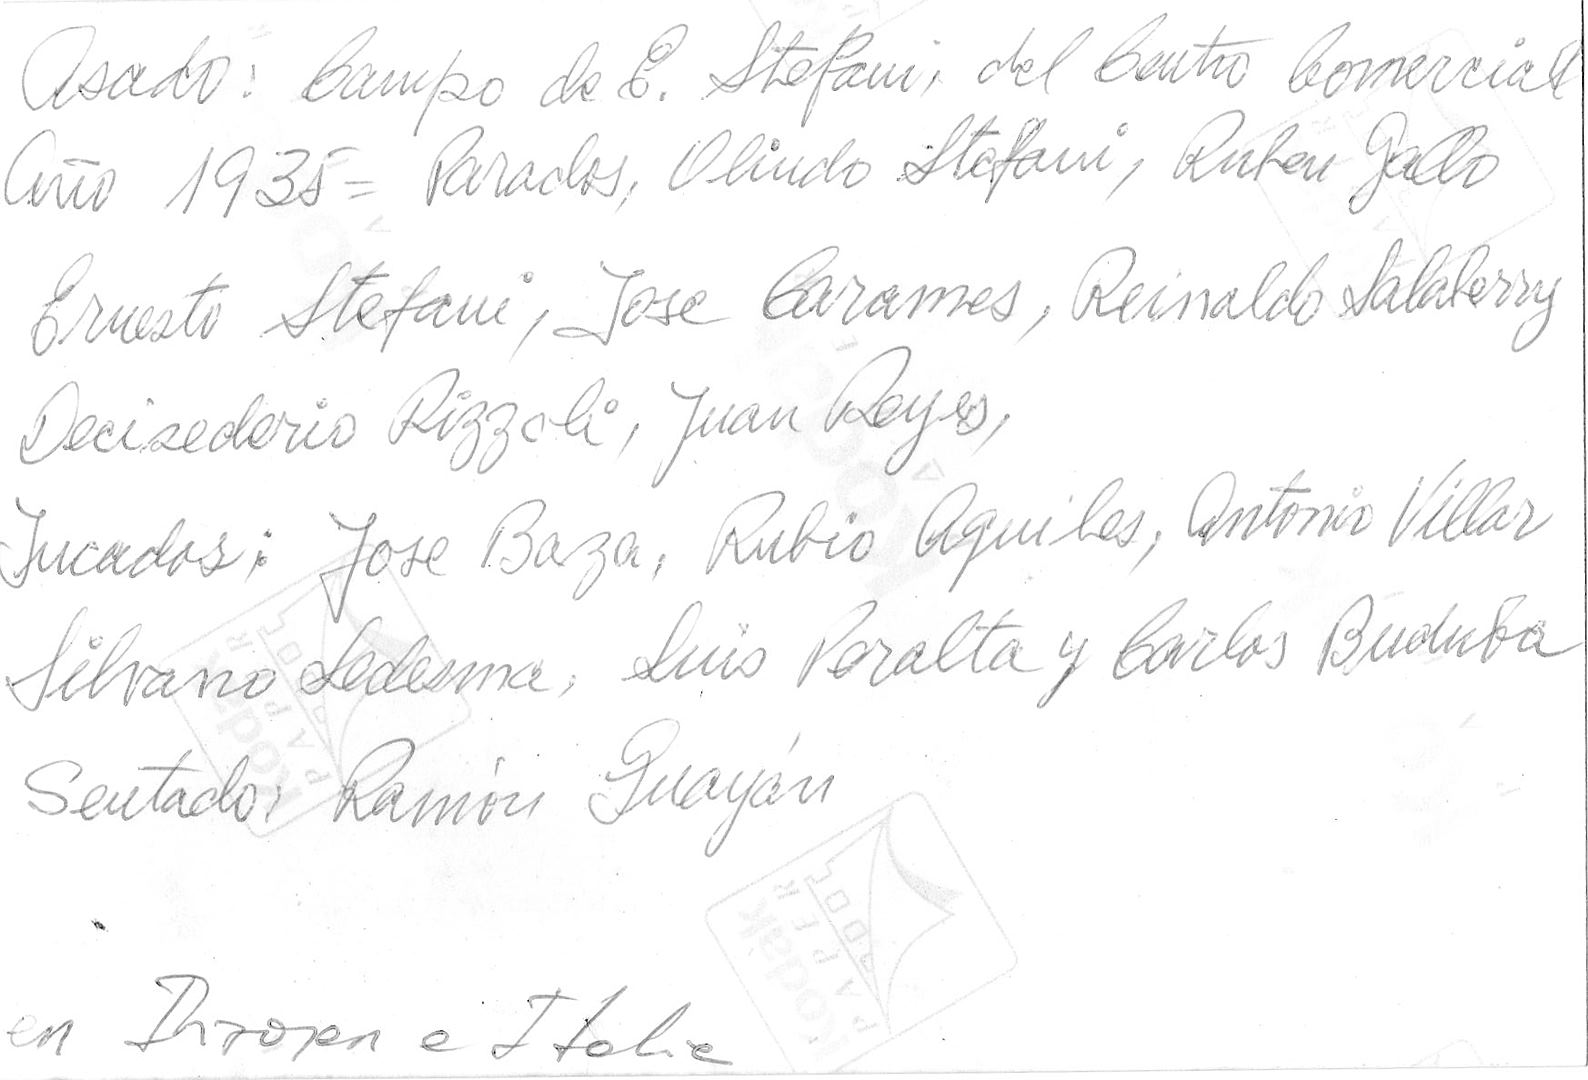 Asado: Campo de E. Stefani, del Centro Comercial
Año 1935= Parados, Olindo Stefani, Ruben Gallo
Ernesto Stefani, Jose Carames, Reinaldo Salaberry
Decisederio Rizzoli, Juan Reyes,
Jucados: Jose Baza, Rubio Aquiles, Antonio Villar
Silvano Ledesma, Luis Peralta y Carlos Buduba
Sentado: Ramón Guayán
en e Italia
Kodak
PAPER